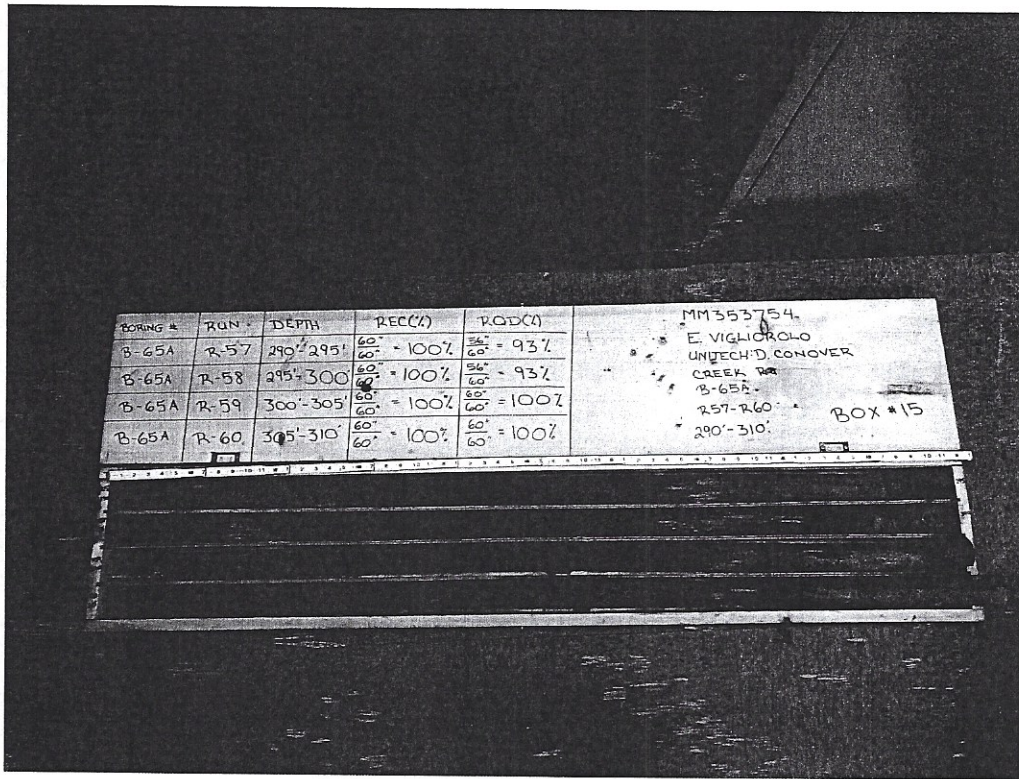 BORING # RUN DEPTH REC(%) RQD(%)
B-65A R-57 290'-295' 60"/60" = 100% 56"/60" = 93%
B-65A R-58 295'-300' 60"/60" = 100% 56"/60" = 93%
B-65A R-59 300'-305' 60"/60" = 100% 60"/60" = 100%
B-65A R-60 305'-310' 60"/60" = 100% 60"/60" = 100%
MM353754
E. VIGLIOROLO
UNITECH: D. CONOVER
CREEK
B-65A
R57-R60
290'-310'
BOX #15